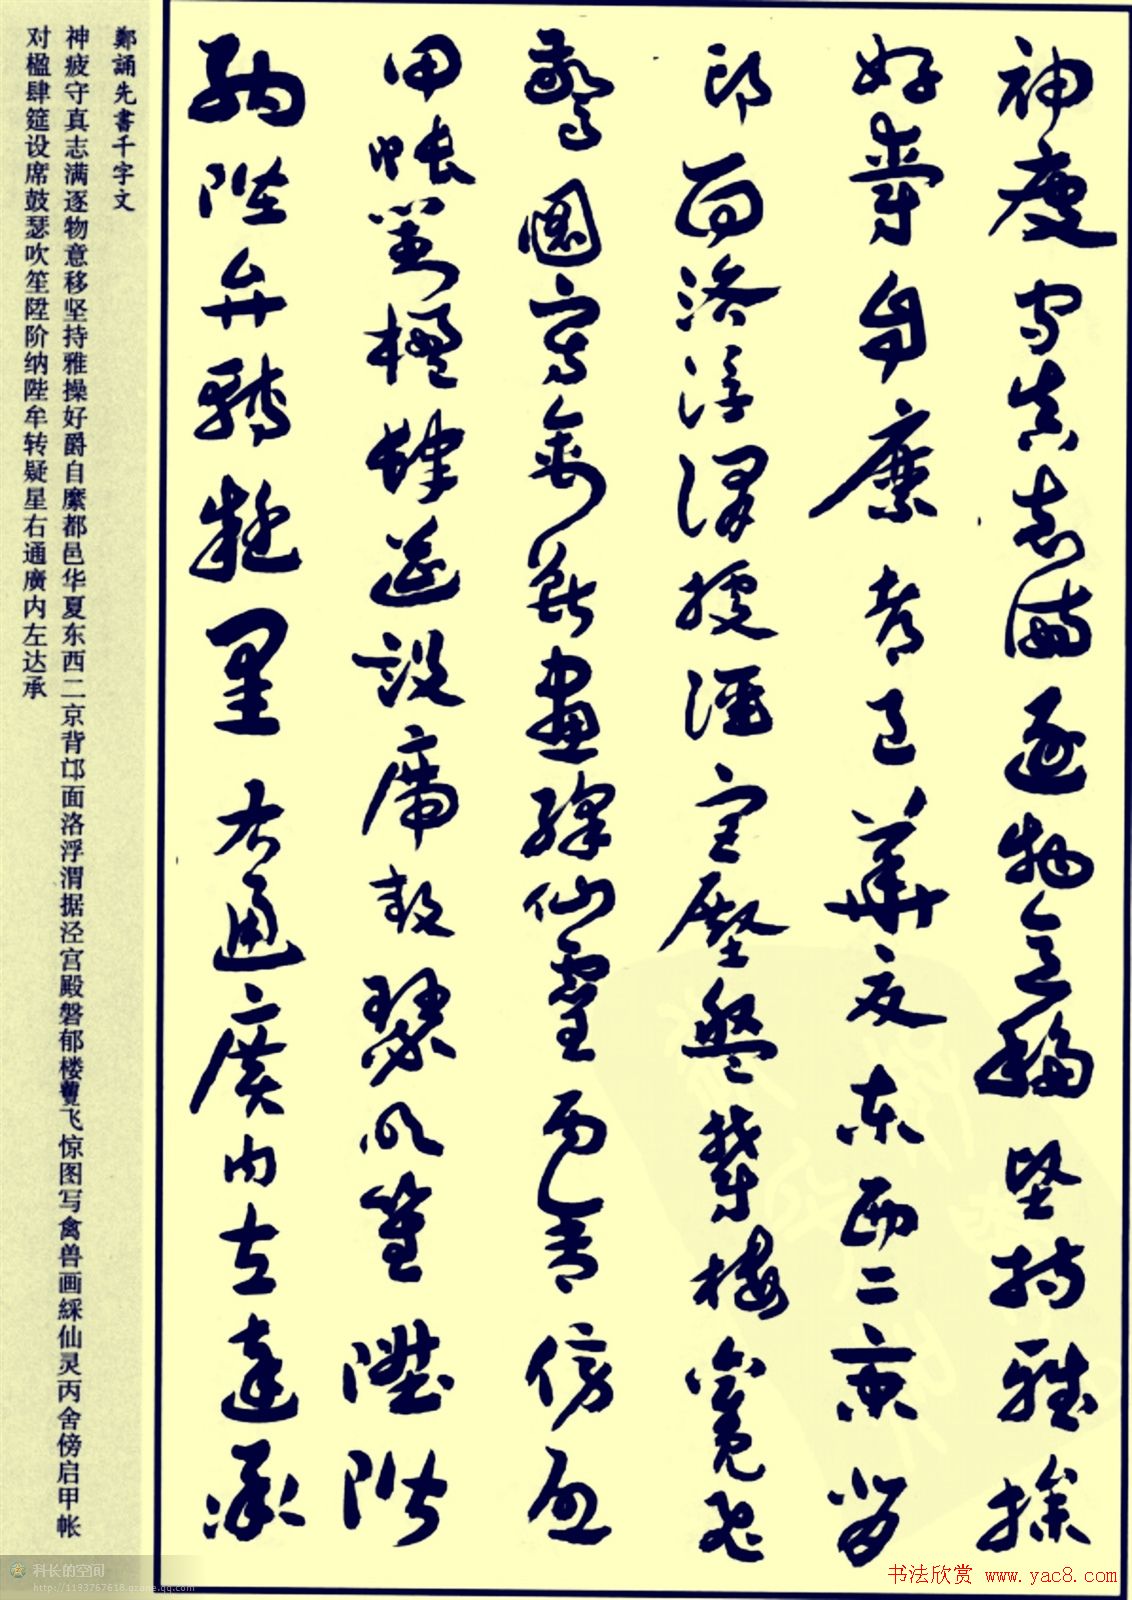 神疲守真志满逐物意移坚持雅操
好爵自縻都邑華夏东西二京背
邙面洛浮渭据泾宫殿盘郁楼观飞
驚圖寫禽獸畫綵仙靈丙舍傍启
甲帐對楹肆筵設席鼓瑟吹笙陞階
納陛弁轉疑星右通廣内左達承
鄭誦先書千字文
神疲守真志满逐物意移坚持雅操好爵自縻都邑华夏东西二京背邙面洛浮渭据泾宫殿磐郁楼飞惊图写禽兽画綵仙灵丙舍傍启甲帐
对楹肆筵设席鼓瑟吹笙陞阶纳陛牟转疑星右通廣内左达承
科长的空间
http://1193767618.qzone.qq.com
书法欣赏 www.yac8.com